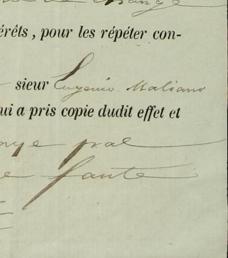 change
érêts, pour les répéter con-
sieur Eugenio Maliano
ui a pris copie dudit effet et
nge par
e faute